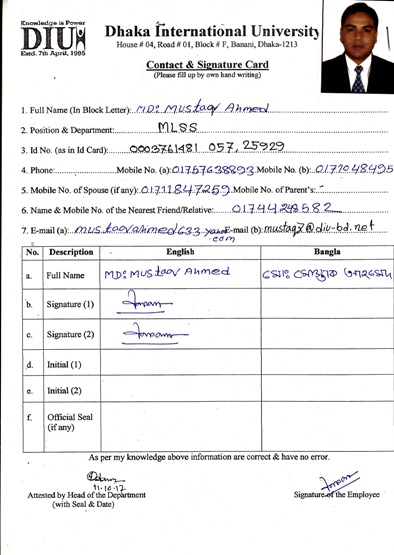 Knowledge is Power
DIU
Estd. 7th April, 1995
Dhaka International University
House # 04, Road # 01, Block # F, Banani, Dhaka-1213
Contact & Signature Card
(Please fill up by own hand writing)
1. Full Name (In Block Letter): MD: Mustaq Ahmed
2. Position & Department: MLSS
3. Id No. (as in Id Card): 0003761481 057, 25929
4. Phone: Mobile No. (a): 01757638893 Mobile No. (b): 01770484 95
5. Mobile No. of Spouse (if any): 01711847259 Mobile No. of Parent's: -
6. Name & Mobile No. of the Nearest Friend/Relative: 01744243582
7. E-mail (a): mustaavahmed633-yahoo.com E-mail (b): mustaq7@diu-bd.net
No. Description English Bangla
a. Full Name MD: Mustaav Ahmed মোঃ মোস্তাক আহমেদ
b. Signature (1)
c. Signature (2)
d. Initial (1)
e. Initial (2)
f. Official Seal (if any)
As per my knowledge above information are correct & have no error.
11-10-17
Attested by Head of the Department
(with Seal & Date)
Signature of the Employee